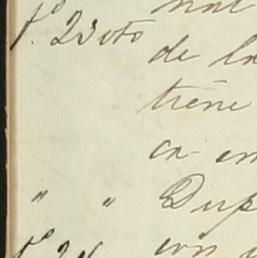 nal
fº 23 vto de la
tiene
ca en
" " Dup
fº 24 con